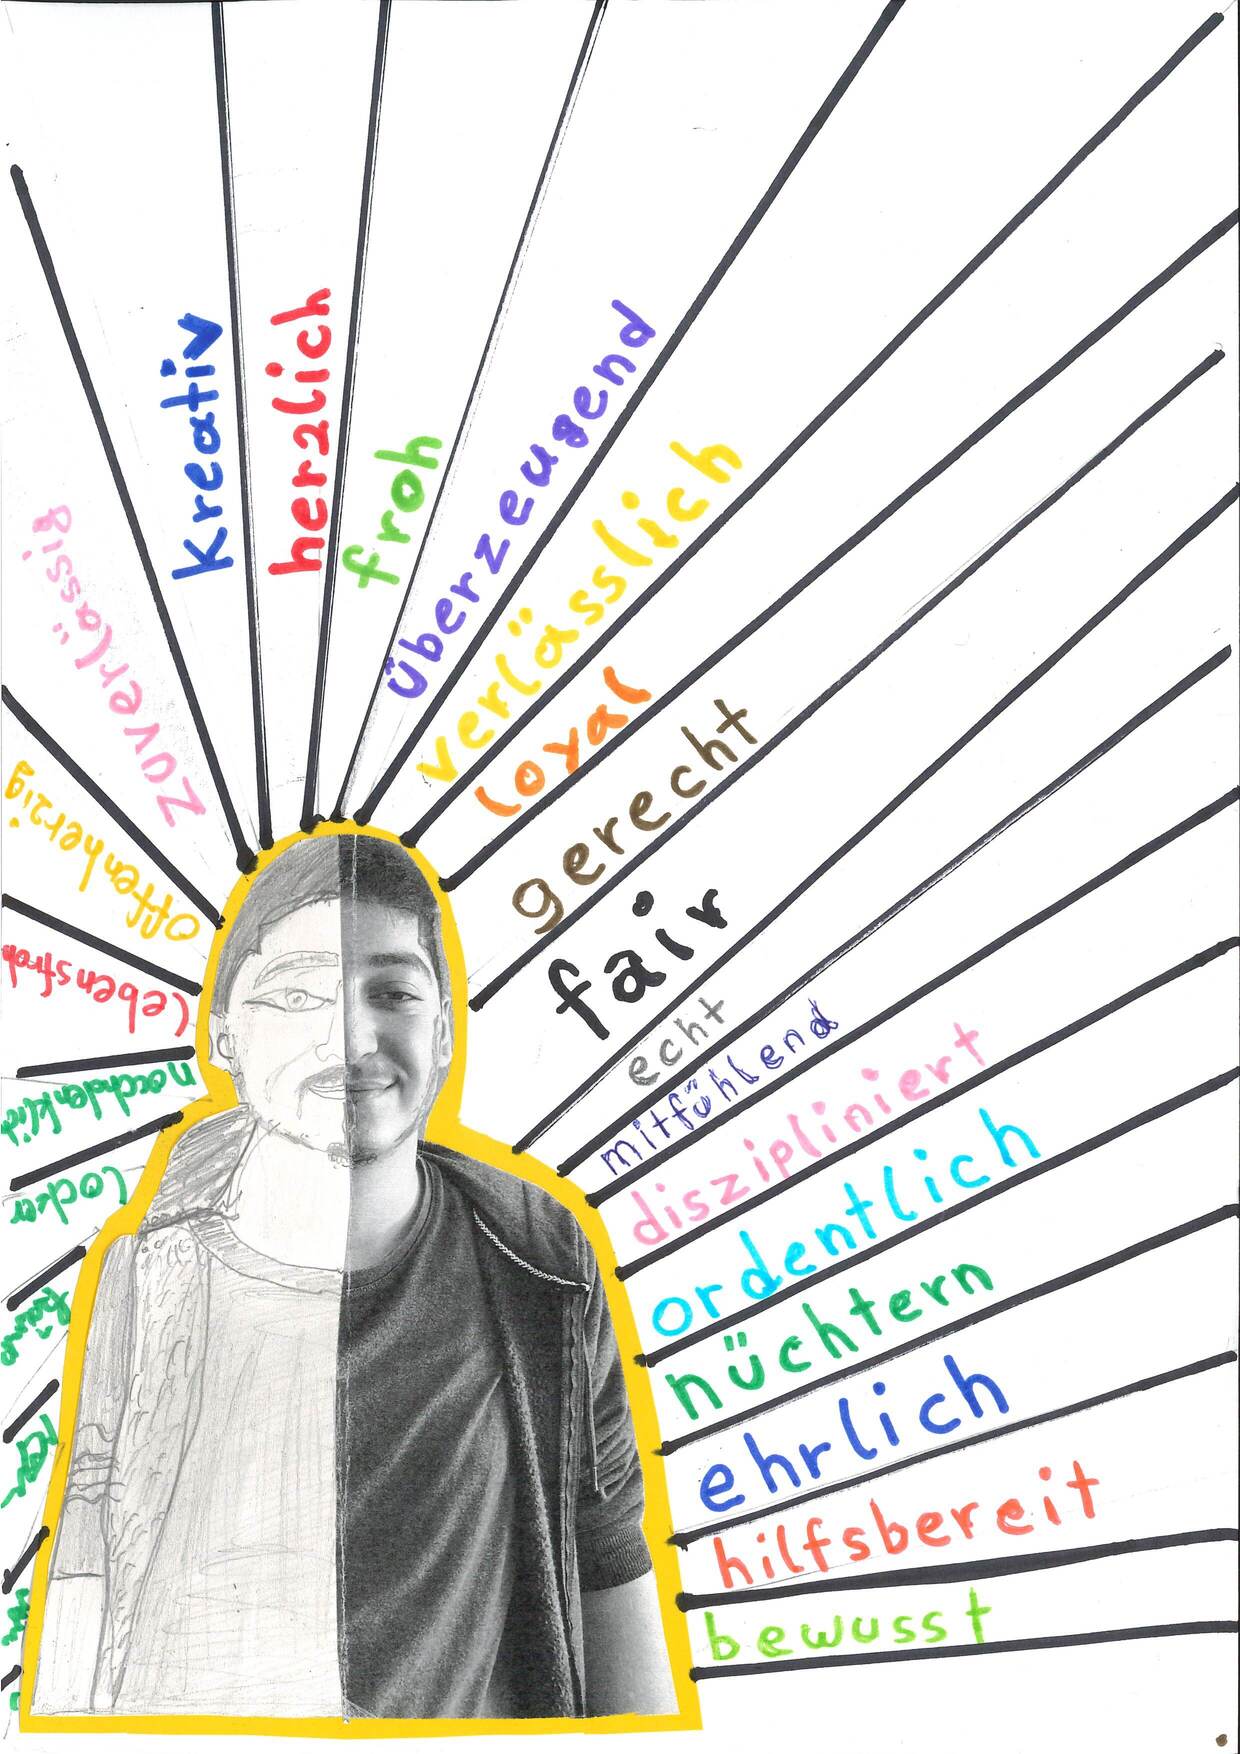 lebensfroh
offenherzig
zuverlässig
kreativ
herzlich
froh
überzeugend
verlässlich
loyal
gerecht
fair
echt
mitfühlend
diszipliniert
ordentlich
nüchtern
ehrlich
hilfsbereit
bewusst
nachdenklich
locker